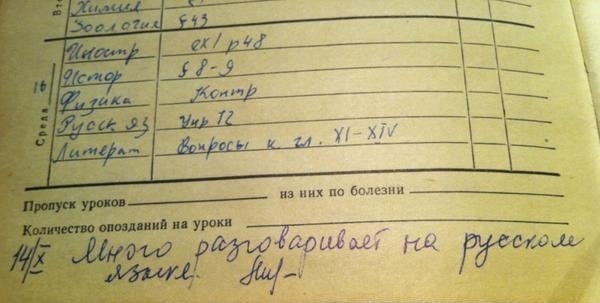 Химия
Зоология §43
Иностр ex1 p48
Истор §8-9
16 Физика Контр
Среда Русск яз Упр 12
Литерат Вопросы к гл. XI-XIV
Пропуск уроков из них по болезни
Количество опозданий на уроки
14/X Много разговаривает на русском
языке